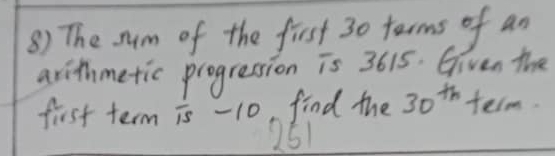 8) The sum of the first 30 terms of an
arithmetic progression is 3615. Given the
first term is -10, find the 30th term.
251